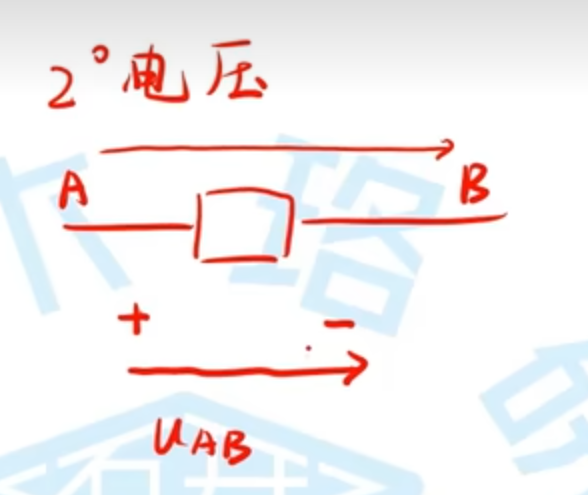 2° 电压
A B
+ -
UAB